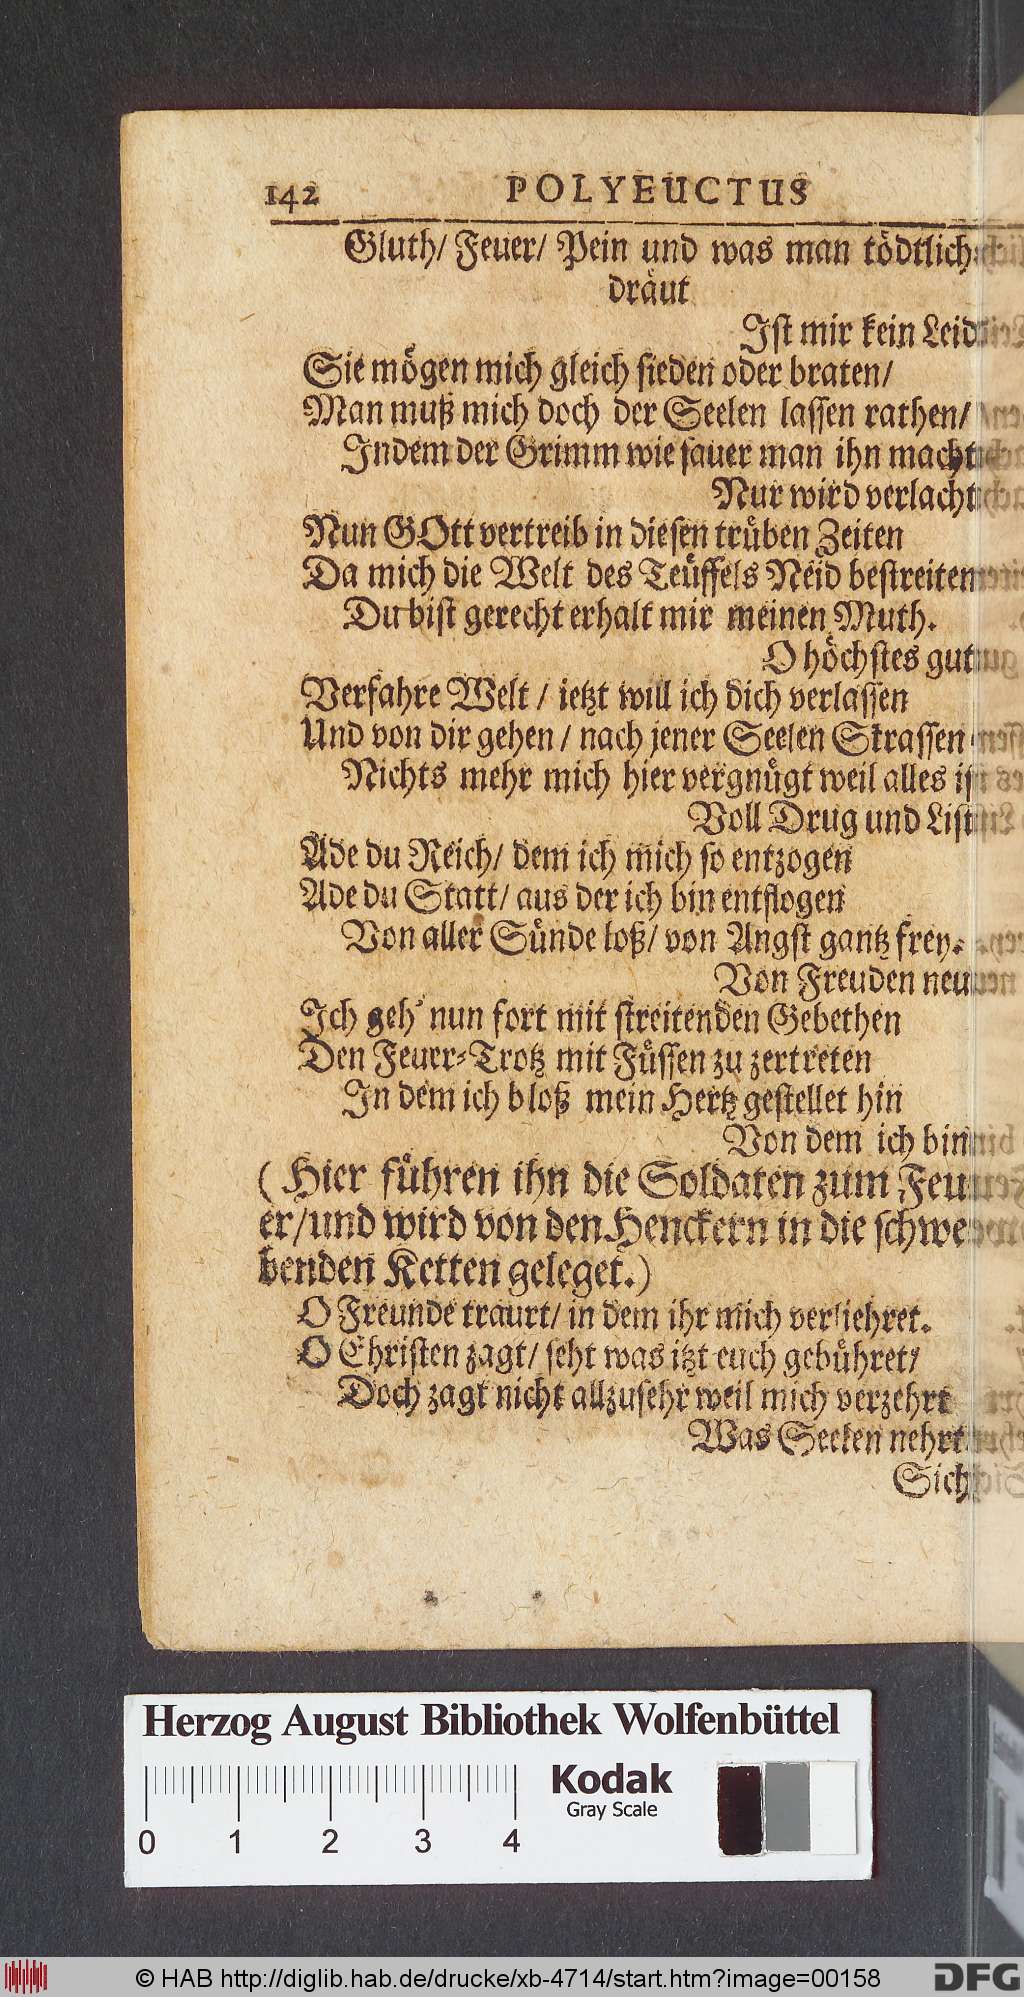 142 POLYEUCTUS
Gluth/ Feuer/ Pein und was man tödtlich
dräut
Ist mir kein Leid
Sie mögen mich gleich sieden oder braten/
Man muß mich doch der Seelen lassen rathen/
Indem der Grimm wie sauer man ihn macht
Nur wird verlacht
Nun GOtt vertreib in diesen trüben Zeiten
Da mich die Welt des Teüffels Neid bestreiten
Du bist gerecht erhalt mir meinen Muth.
O höchstes gut
Verfahre Welt / ietzt will ich dich verlassen
Und von dir gehen / nach jener Seelen Strassen
Nichts mehr mich hier vergnügt weil alles ist
Voll Drug und List
Ade du Reich/ dem ich mich so entzogen
Ade du Statt/ aus der ich bin entflogen
Von aller Sünde loß/ von Angst gantz frey.
Von Freuden neu
Ich geh' nun fort mit streitenden Gebethen
Den Feuer-Trotz mit Füssen zu zertreten
In dem ich bloß mein Hertz gestellet hin
Von dem ich bin
(Hier führen ihn die Soldaten zum Feu
er/und wird von den Henckern in die schwe
benden Ketten geleget.)
O Freunde traurt/ in dem ihr mich verliehret.
O Christen zagt/ seht was itzt euch gebühret/
Doch zagt nicht allzusehr weil mich verzehrt
Was Seelen nehrt
Sich
Herzog August Bibliothek Wolfenbüttel
Kodak
Gray Scale
0 1 2 3 4
© HAB http://diglib.hab.de/drucke/xb-4714/start.htm?image=00158 DFG